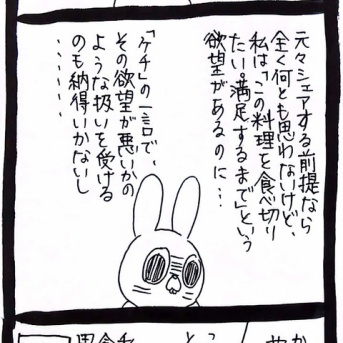 元々シェアする前提なら
全く何とも思わないけど、
私は「この料理を食べ切り
たい。満足するまで」という
欲望があるのに…
「ケチ」の一言で、
その欲望が悪いかの
ような扱いを受ける
のも納得いかないし
……